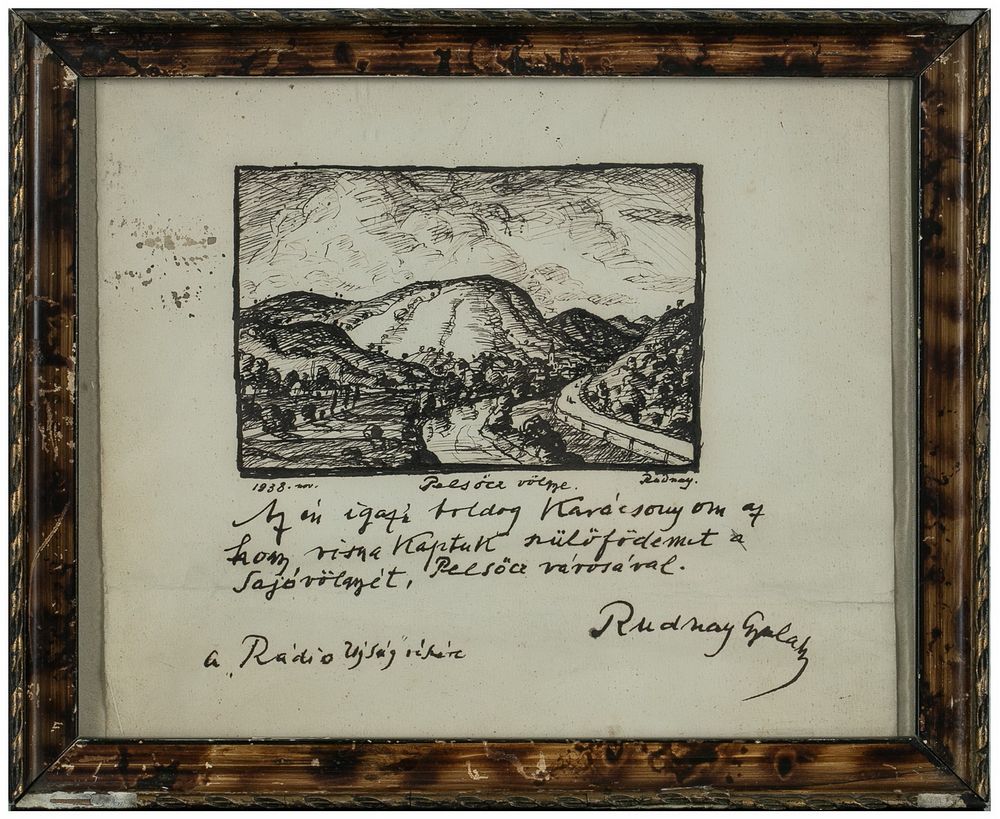 1938. nov. Pelsőcz völgye. Rudnay.
Az én igazi boldog Karácsonyom az
hogy visza Kaptuk szülőfödemet a
Sajóvölgyét, Pelsőcz városával.
Rudnay Gyula
a Rádió Ujság részére